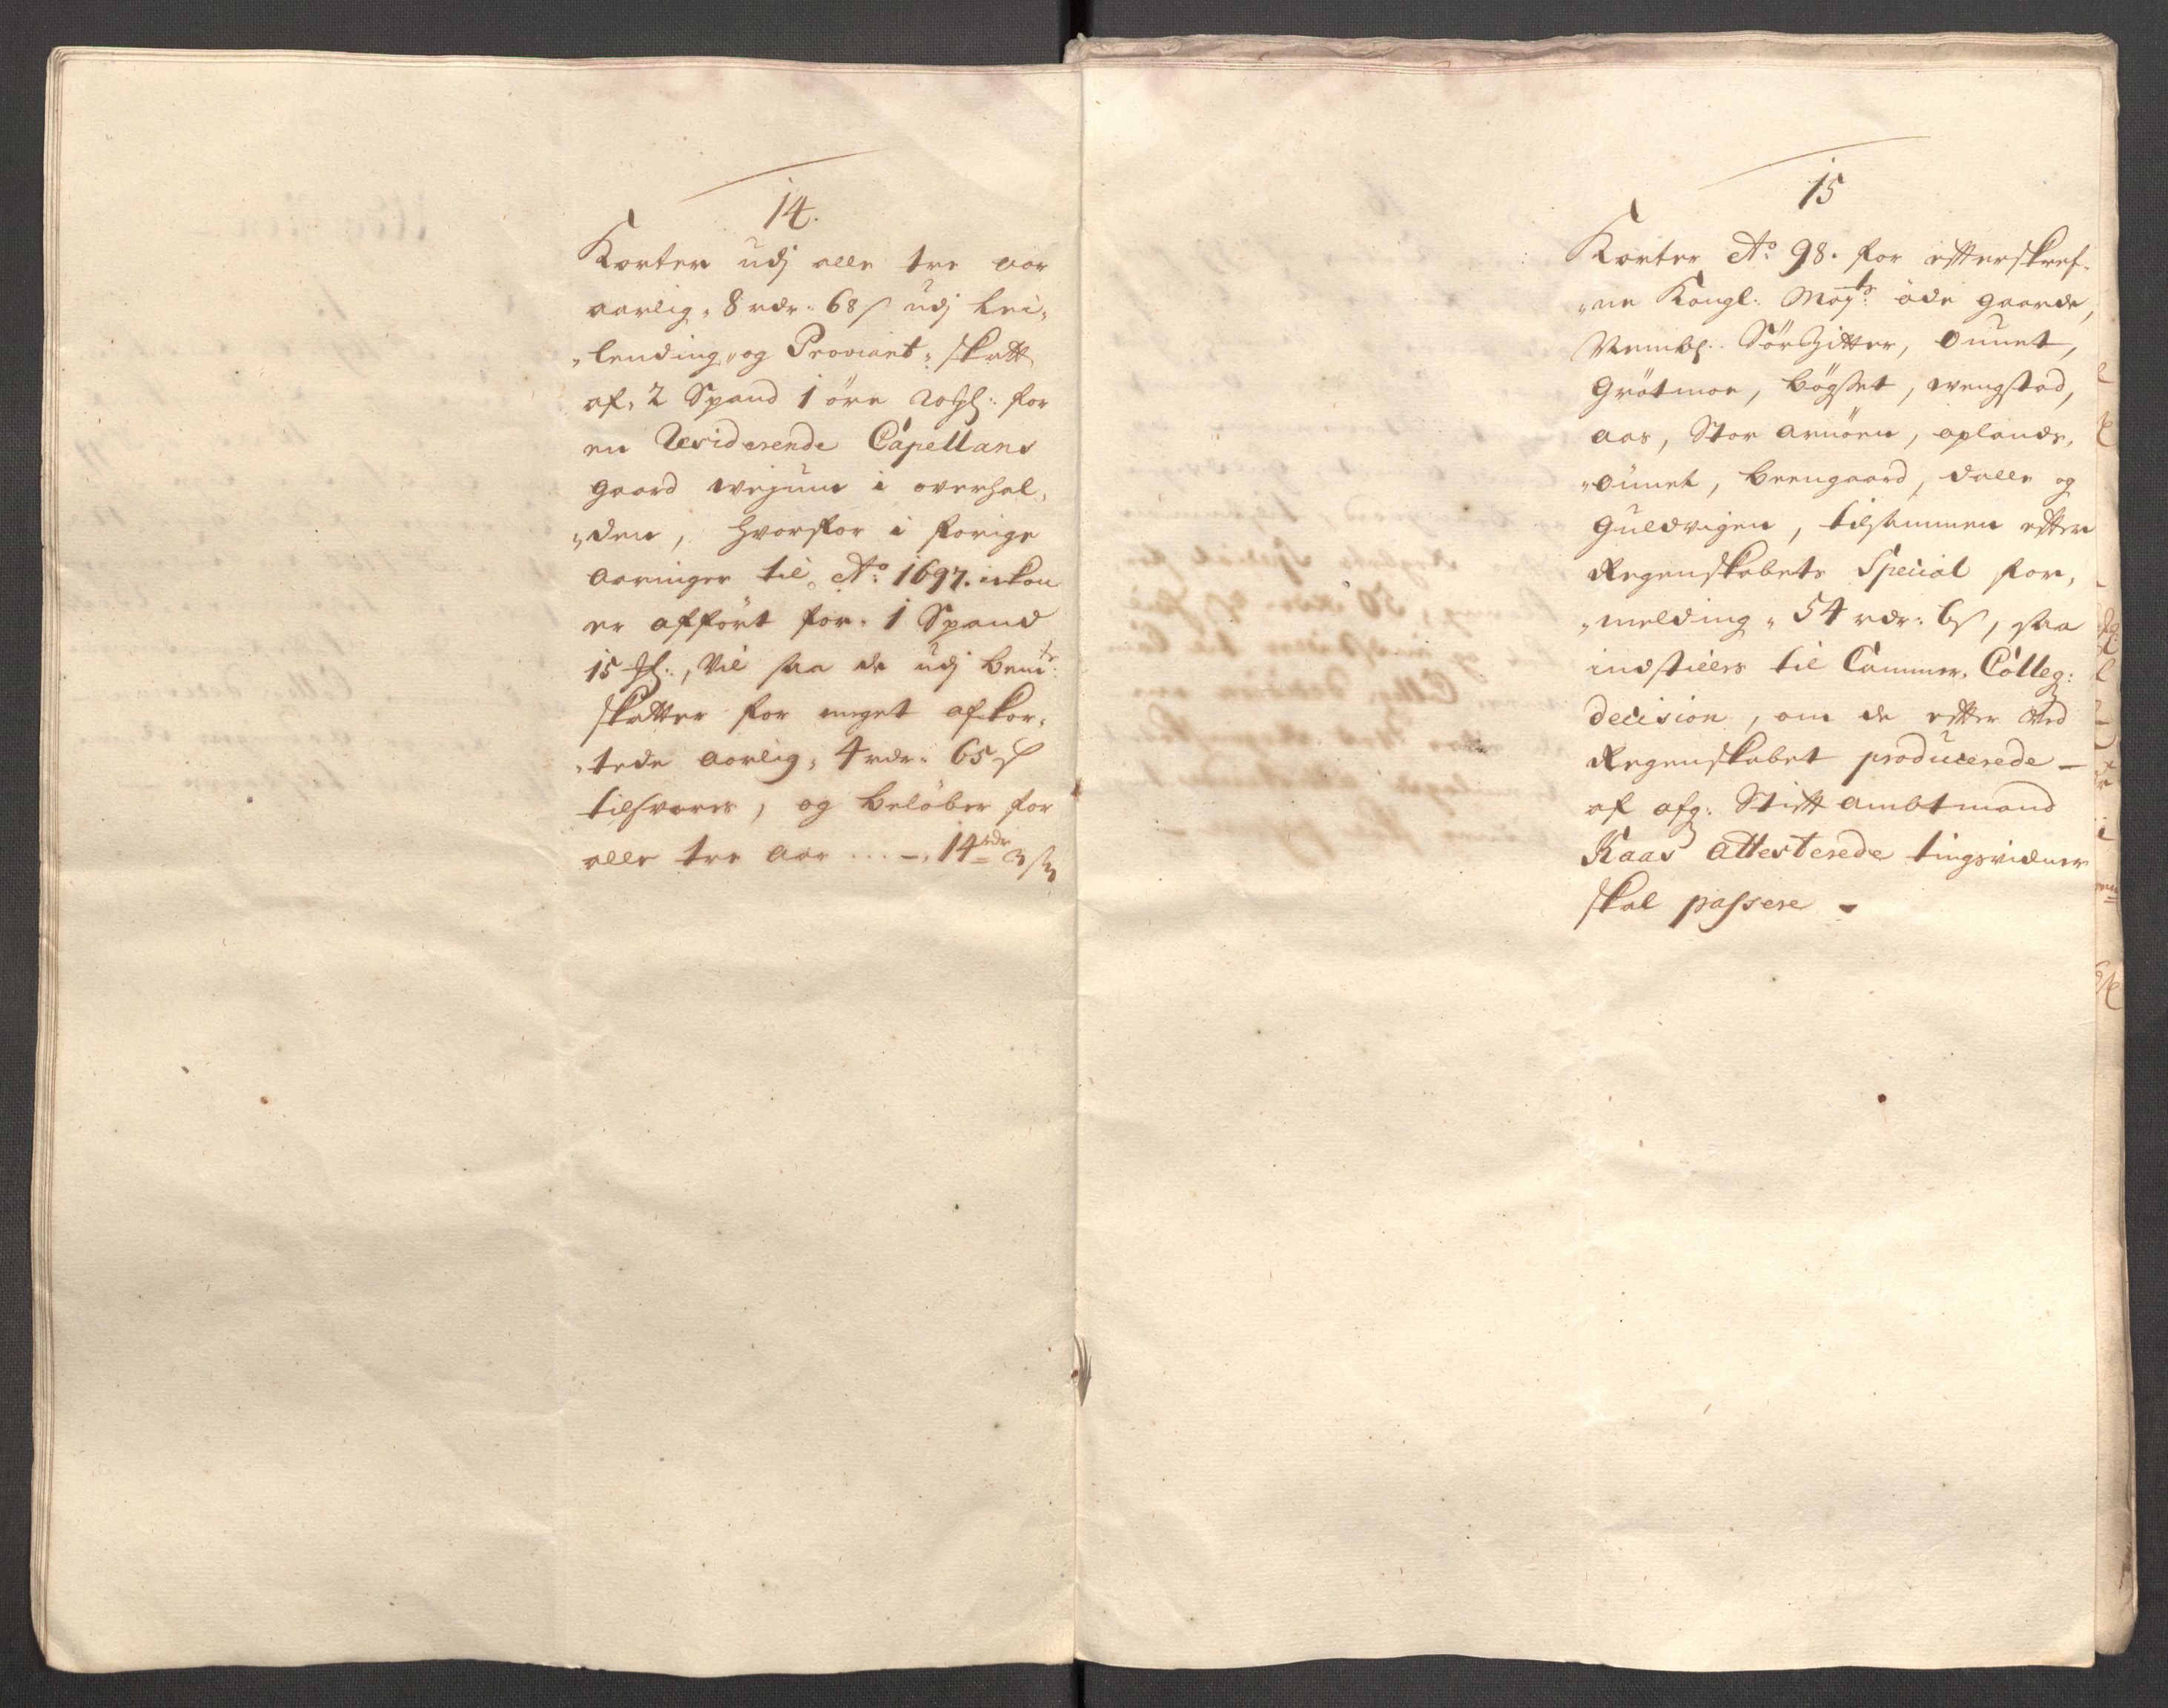 14.
Korter udj alle tre aar
aarlig, 8 rdr: 68 s udj Lei„
„lending„ og Proviant„ Skatt
af, 2 Spand 1 öre for
en Residerende Capellans
gaard wejum i overhal„
„den, hvorfor i forige
aaringer til Ao: 1697. ickon
er afført for. 1 Spand
15 , Vil saa da udj bemte:
Skatter for meget afkor„
„tede aarlig, 4 rdr: 65 s
tilsvares, og belöber for
alle tre aar ... –, 14 rdr 3 s
15
Korter Ao 98. for effterskref„
„ne Kongl: Mayts: öde gaarde,
Nembl: Sör Hitter, ounet,
Grötmoe, bögset, wengstad,
aas, Stor arnöen, oplands„
„öunet, beengaard, dalle og
Guldvigen, tilsammen effter
Regenskabets Special for„
„melding „ 54 rdr: 6 s, saa
indstilles til Cammer„ Colleg:
decision, om de effter ved
Regenskabet producerede –
af afg: Stifft ambtmand
Kaas attesterede tingsvidner
skal passere –